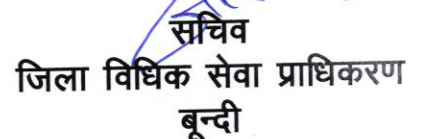 सचिव
जिला विधिक सेवा प्राधिकरण
बून्दी